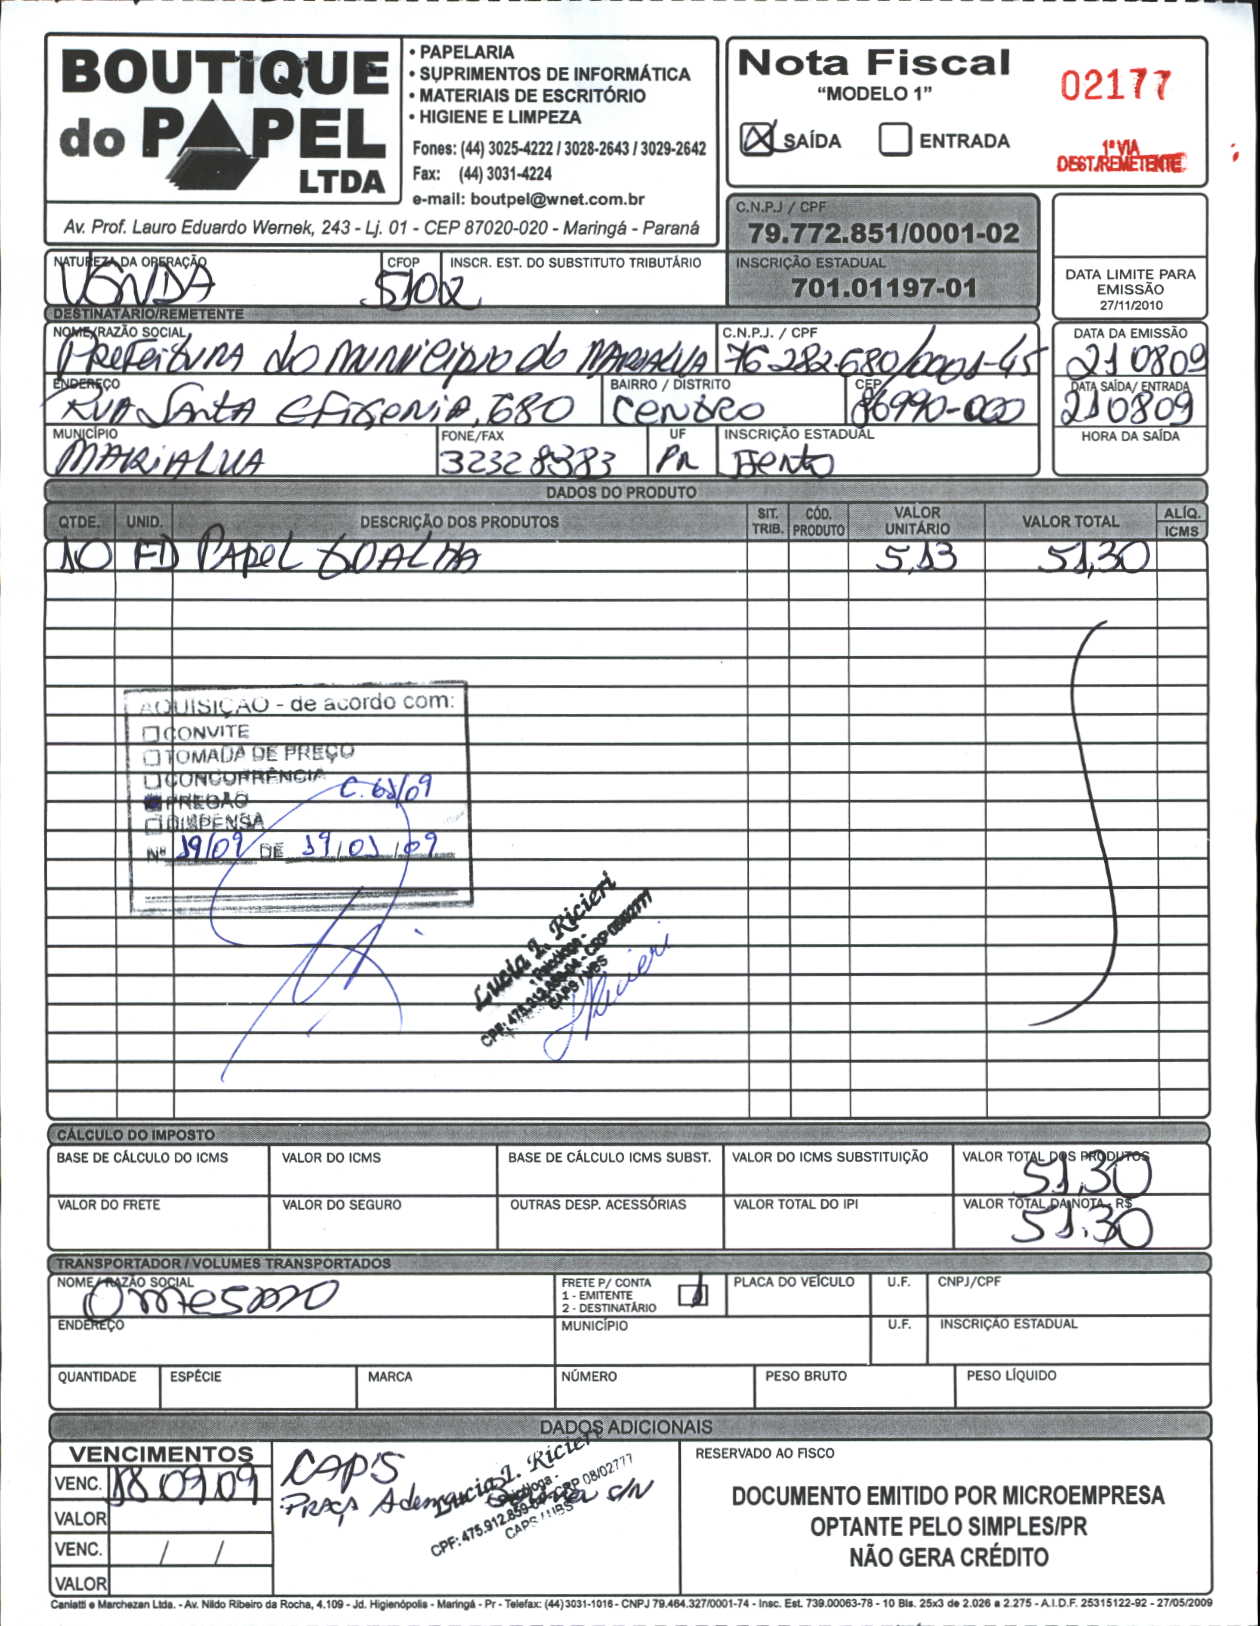 BOUTIQUE
do PAPEL
LTDA
• PAPELARIA
• SUPRIMENTOS DE INFORMÁTICA
• MATERIAIS DE ESCRITÓRIO
• HIGIENE E LIMPEZA
Fones: (44) 3025-4222 / 3028-2643 / 3029-2642
Fax: (44) 3031-4224
e-mail: boutpel@wnet.com.br
Av. Prof. Lauro Eduardo Wernek, 243 - Lj. 01 - CEP 87020-020 - Maringá - Paraná
Nota Fiscal
"MODELO 1"
02177
X SAÍDA ENTRADA
1ª VIA
DEST./REMETENTE
C.N.P.J / CPF
79.772.851/0001-02
INSCRIÇÃO ESTADUAL
701.01197-01
DATA LIMITE PARA
EMISSÃO
27/11/2010
NATUREZA DA OPERAÇÃO CFOP INSCR. EST. DO SUBSTITUTO TRIBUTÁRIO
VENDA 5102
DESTINATÁRIO/REMETENTE
NOME/RAZÃO SOCIAL C.N.P.J. / CPF DATA DA EMISSÃO
Prefeitura do município de MARIALVA 76.282.680/0001-45 210809
ENDEREÇO BAIRRO / DISTRITO CEP DATA SAÍDA/ ENTRADA
RUA Santa Efigenia, 680 Centro 86990-000 210809
MUNICÍPIO FONE/FAX UF INSCRIÇÃO ESTADUAL HORA DA SAÍDA
MARIALVA 32328383 PR Isento
DADOS DO PRODUTO
QTDE. UNID. DESCRIÇÃO DOS PRODUTOS SIT. TRIB. CÓD. PRODUTO VALOR UNITÁRIO VALOR TOTAL ALÍQ. ICMS
10 FD PAPEL TOALHA 5,13 51,30
AQUISIÇÃO - de acordo com:
CONVITE
TOMADA DE PREÇO
CONCORRÊNCIA
C. 61/09
PREGÃO
DISPENSA
Nº 19/09 DE 19/01/09
Lucia I. Ricieri
- Psicóloga -
CPF: 475.912.859-04 - CRP 08/02777
CAPS / UBS
CÁLCULO DO IMPOSTO
BASE DE CÁLCULO DO ICMS VALOR DO ICMS BASE DE CÁLCULO ICMS SUBST. VALOR DO ICMS SUBSTITUIÇÃO VALOR TOTAL DOS PRODUTOS
51,30
VALOR DO FRETE VALOR DO SEGURO OUTRAS DESP. ACESSÓRIAS VALOR TOTAL DO IPI VALOR TOTAL DA NOTA - R$
51.30
TRANSPORTADOR / VOLUMES TRANSPORTADOS
NOME/ RAZÃO SOCIAL FRETE P/ CONTA PLACA DO VEÍCULO U.F. CNPJ/CPF
O mesmo 1 - EMITENTE 1
2 - DESTINATÁRIO
ENDEREÇO MUNICÍPIO U.F. INSCRIÇÃO ESTADUAL
QUANTIDADE ESPÉCIE MARCA NÚMERO PESO BRUTO PESO LÍQUIDO
DADOS ADICIONAIS
VENCIMENTOS
VENC. 18 09 09
VALOR
VENC. / /
VALOR
CAP'S
PRAÇA s/n
Lucia I. Ricieri
- Psicóloga -
CPF: 475.912.859-04 - CRP 08/02777
CAPS / UBS
RESERVADO AO FISCO
DOCUMENTO EMITIDO POR MICROEMPRESA
OPTANTE PELO SIMPLES/PR
NÃO GERA CRÉDITO
Caniatti e Marchezan Ltda. - Av. Nildo Ribeiro da Rocha, 4.109 - Jd. Higienópolis - Maringá - Pr - Telefax: (44) 3031-1016 - CNPJ 79.464.327/0001-74 - Insc. Est. 739.00063-78 - 10 Bls. 25x3 de 2.026 a 2.275 - A.I.D.F. 25315122-92 - 27/05/2009